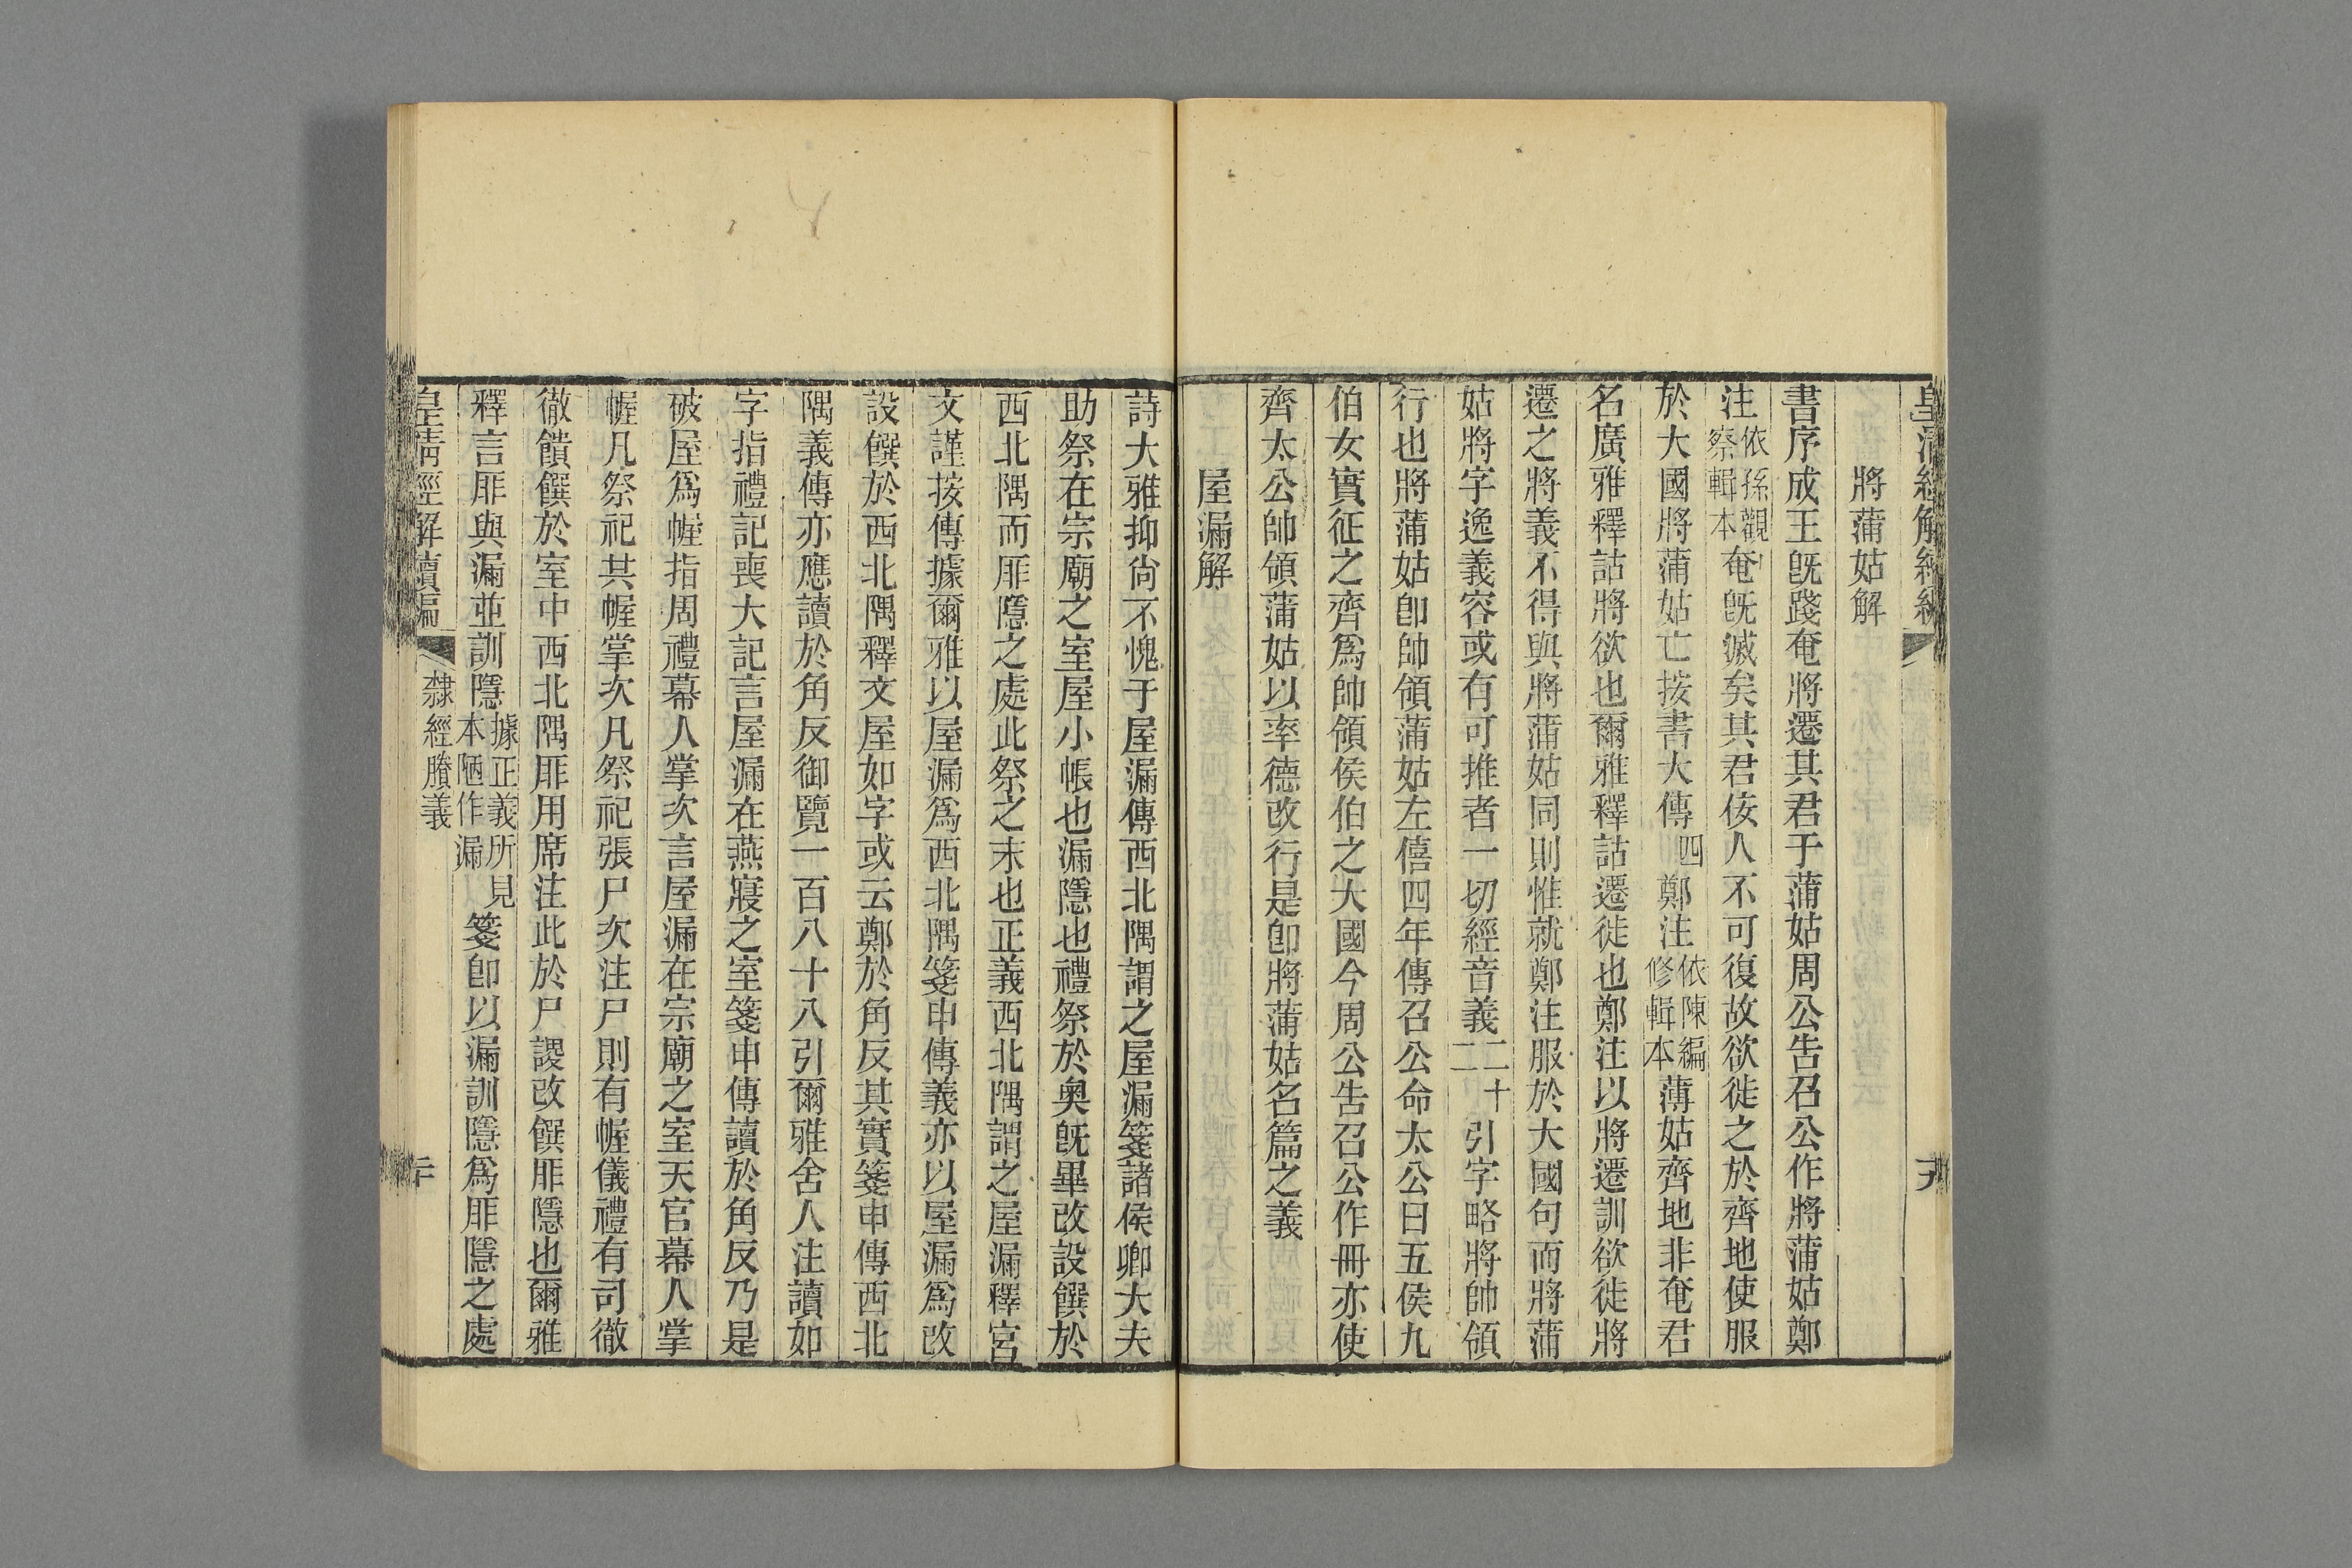 將蒲姑解
書序成王旣踐奄將遷其君于蒲姑周公告召公作將蒲姑鄭
注依孫觀察輯本奄旣滅矣其君佞人不可復故欲徙之於齊地使服
於大國將蒲姑亡按書大傳四鄭注依陳編修輯本薄姑齊地非奄君
名廣雅釋詁將欲也爾雅釋詁遷徙也鄭注以將遷訓欲徙將
遷之將義不得與將蒲姑同則惟就鄭注服於大國句而將蒲
姑將字逸義容或有可推者一切經音義二十二引字略將帥領
行也將蒲姑卽帥領蒲姑左僖四年傳召公命太公曰五侯九
伯女實征之齊爲帥領侯伯之大國今周公告召公作冊亦使
齊太公帥領蒲姑以率德改行是卽將蒲姑名篇之義
屋漏解
詩大雅抑尙不愧于屋漏傳西北隅謂之屋漏箋諸侯卿大夫
助祭在宗廟之室屋小帳也漏隱也禮祭於奧旣畢改設饌於
西北隅而厞隱之處此祭之末也正義西北隅謂之屋漏釋宮
文謹按傳據爾雅以屋漏爲西北隅箋申傳義亦以屋漏爲改
設饌於西北隅釋文屋如字或云鄭於角反其實箋申傳西北
隅義傳亦應讀於角反御覽一百八十八引爾雅舍人注讀如
字指禮記喪大記言屋漏在燕寢之室箋申傳讀於角反乃是
破屋爲幄指周禮幕人掌次言屋漏在宗廟之室天官幕人掌
幄凡祭祀共幄掌次凡祭祀張尸次注尸則有幄儀禮有司徹
徹饋饌於室中西北隅厞用席注此於尸謖改饌厞隱也爾雅
釋言厞與漏並訓隱據正義所見本陋作漏箋卽以漏訓隱爲厞隱之處
皇淸經解續編
隸經賸義